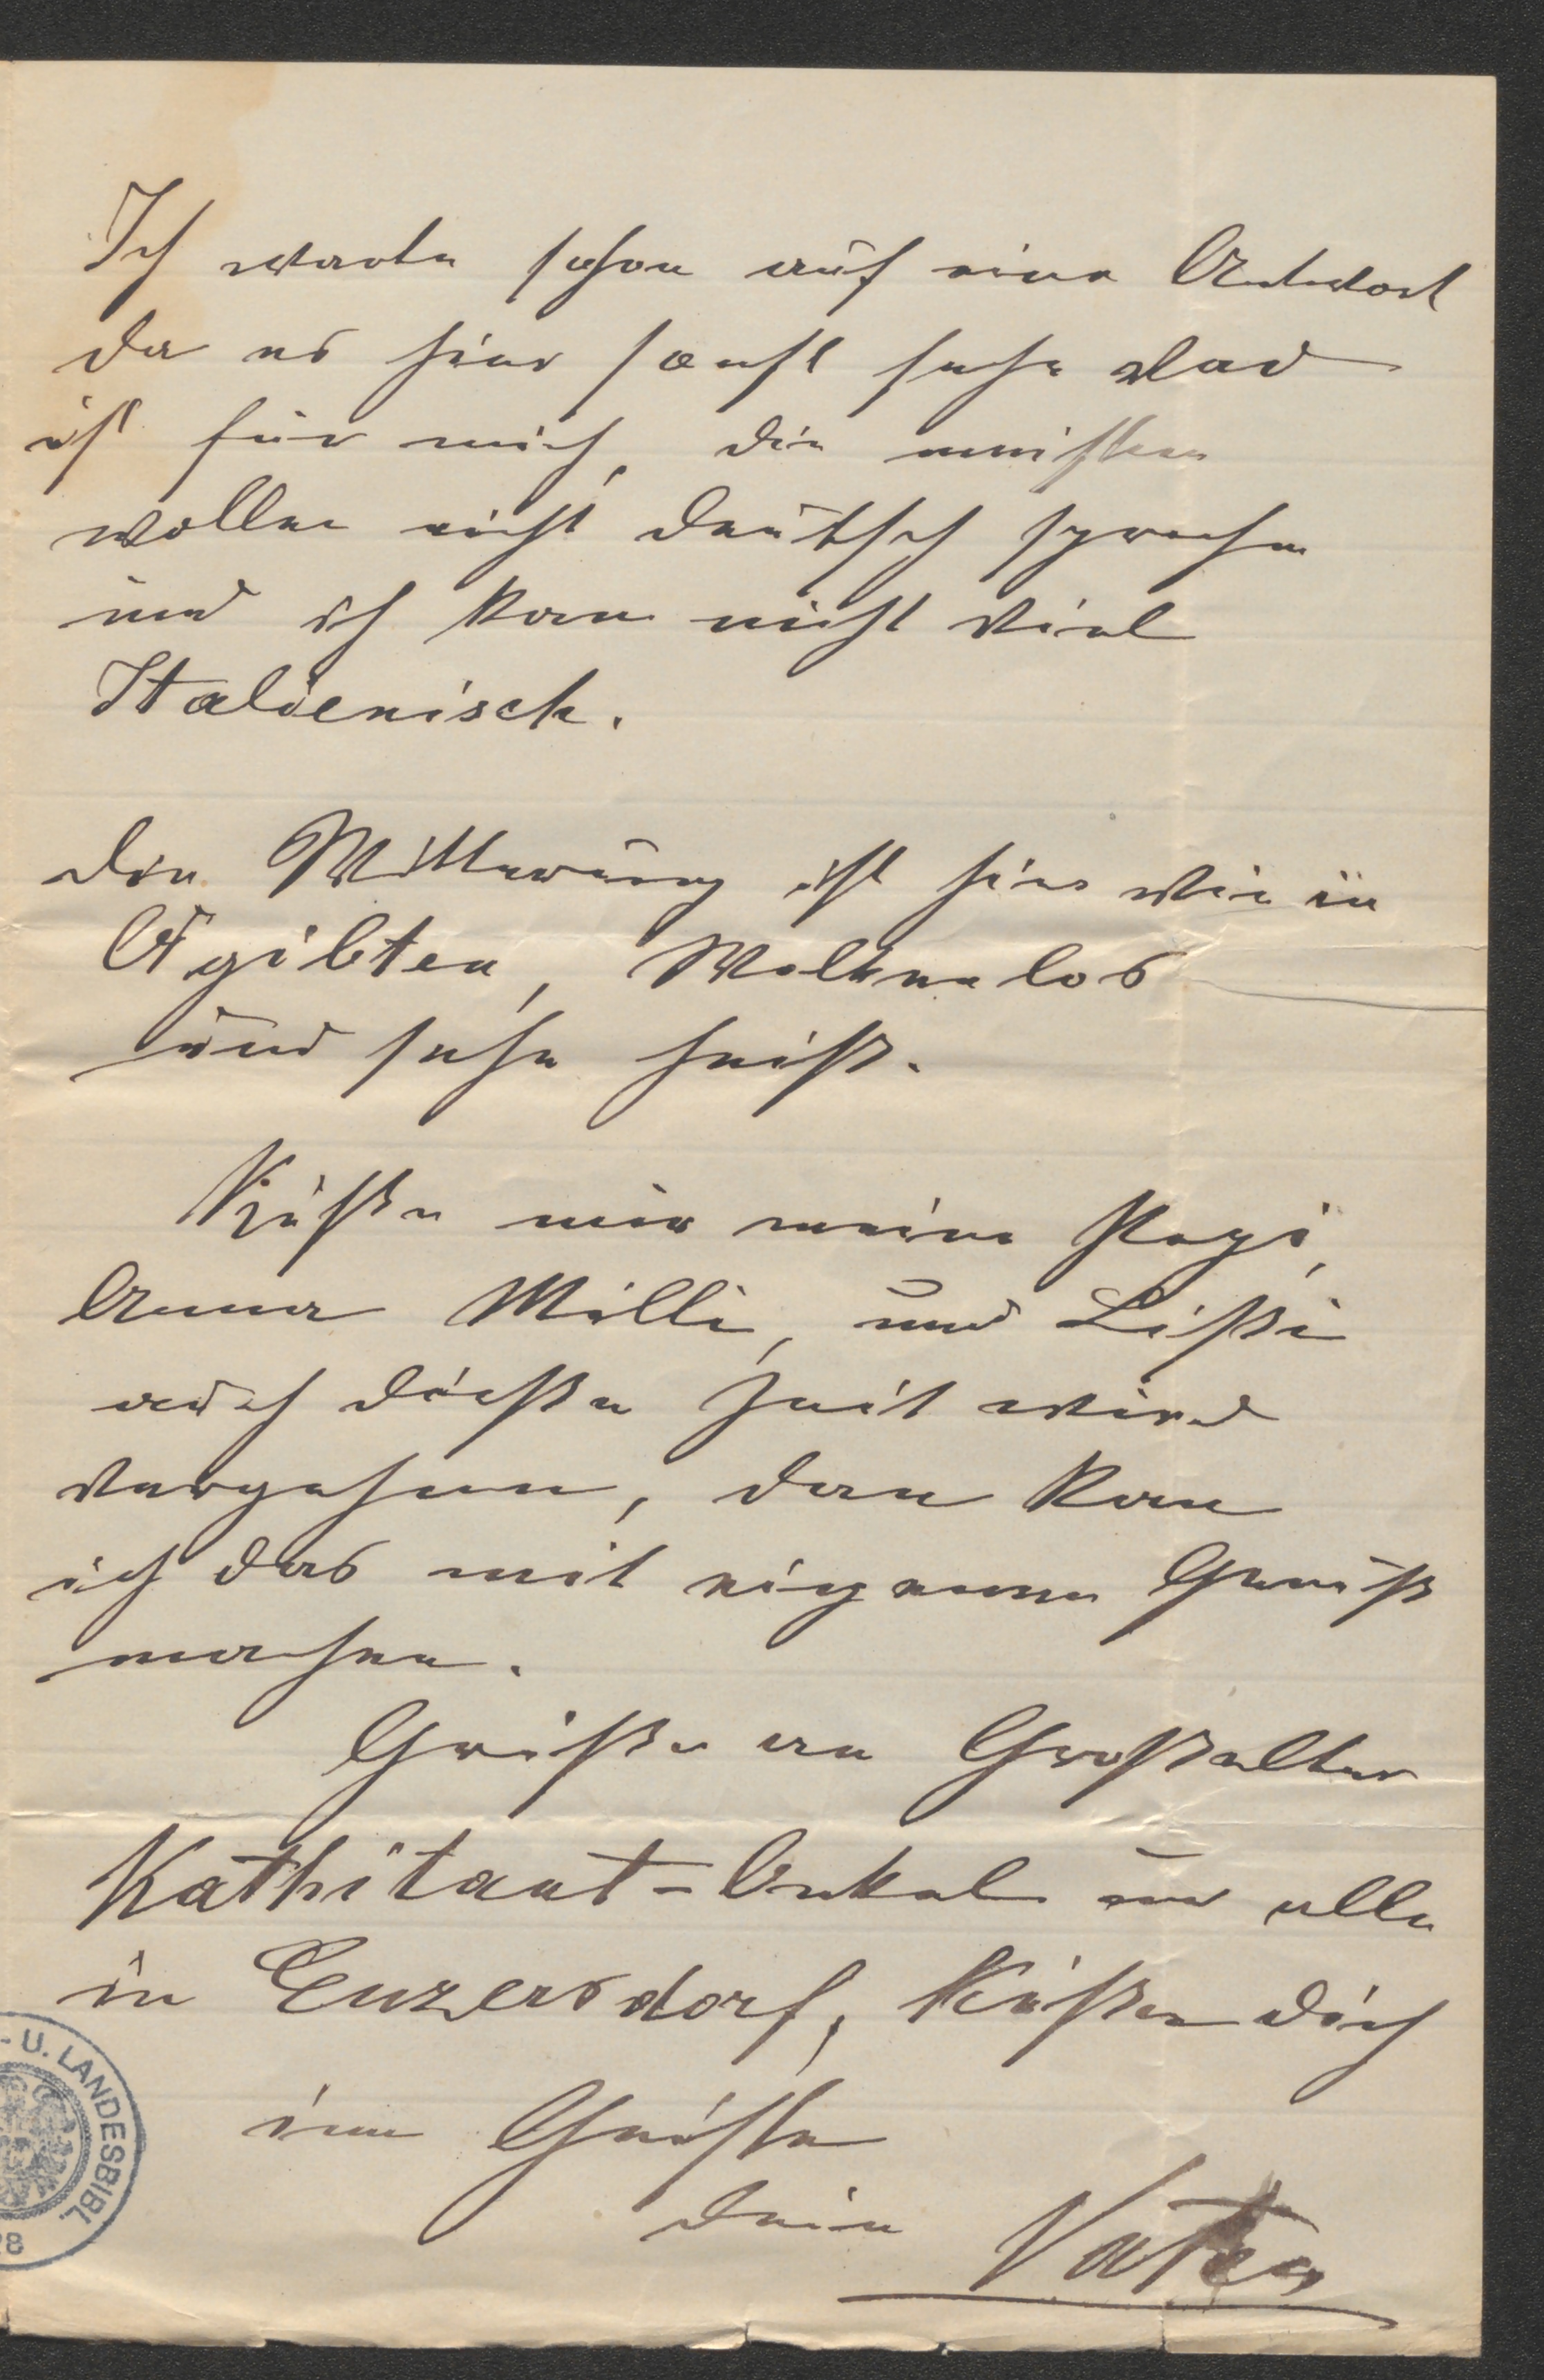 Ich warte schon auf eine Antwort
da es hier sonst sehr
ist für mich, die meisten
wollen nicht deutsch sprechen
und ich kan nicht viel
Italienisch.
Die Witterung ist hier wie in
Ägibten, Wolkenlos
und sehr heiß.
Küße mir meine Pepi,
Anna Milli, und Lißi
auch dieße Zeit wird
vergehenn, dan kan
ich das mit eigenen Genuß
machen.
Grüße an Großelter
Kathitant-Onkel und alle
in Enzersdorf, Küßen dich
im Geiste
dein Vater
- U. LANDESBIBL.
28